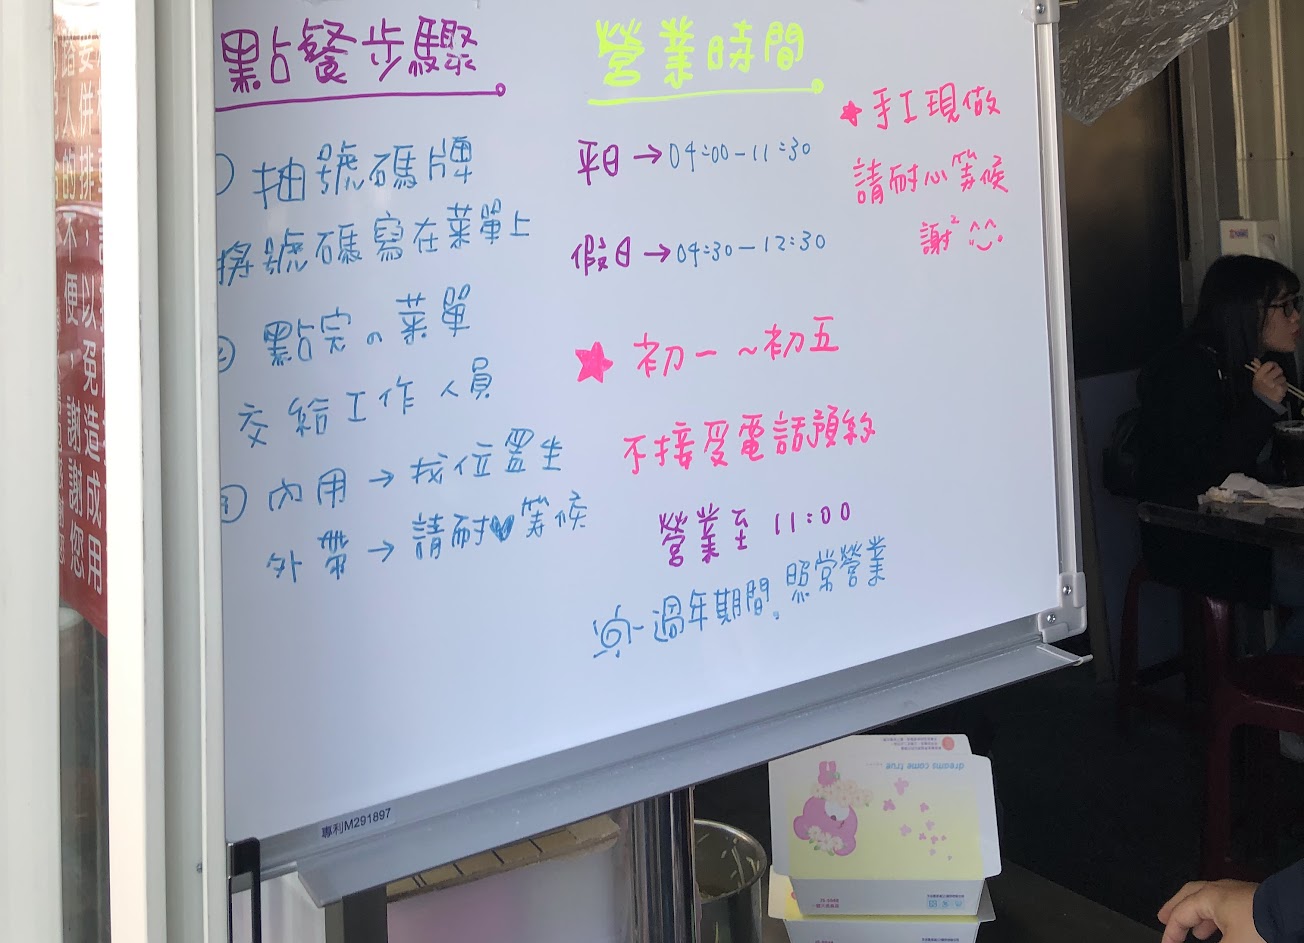 點餐步驟
① 抽號碼牌
將號碼寫在菜單上
② 點完の菜單
交給工作人員
③ 內用→找位置坐
外帶→請耐♥等候
營業時間
平日→04:00-11:30
假日→04:30-12:30
★初一~初五
不接受電話預約
營業至 11:00
過年期間。照常營業
★手工現做
請耐心等候
謝² ^^
專利M291897
dreams come true
以免造成用
不便,謝謝您